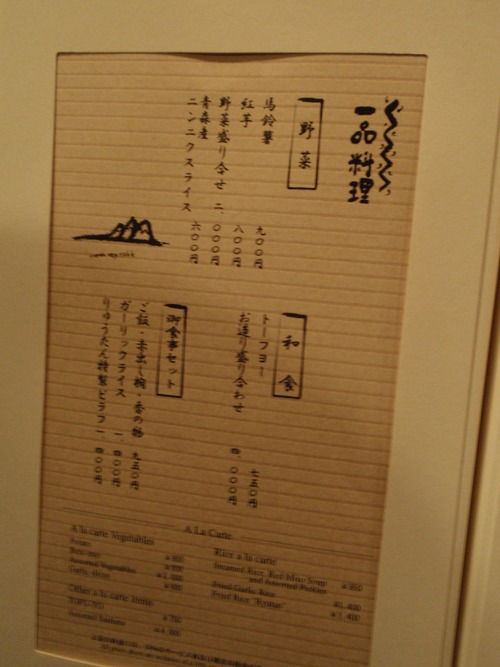 一品料理
野菜
馬鈴薯 九〇〇円
紅芋 八〇〇円
野菜盛り合せ 二、〇〇〇円
青森産
ニンニクスライス 六〇〇円
和食
トーフヨー 七五〇円
お造り盛り合わせ 四、〇〇〇円
御食事セット
ご飯・赤出し椀・香の物 九五〇円
ガーリックライス 一、四〇〇円
りゅうたん特製ピラフ 一、四〇〇円
A La Carte
A la carte Vegetables
Potato
Beni-imo
Assorted Vegetables
Garlic slices
Other a la carte items
TOFU-YO
Assorted Sashimi
Rice a la carte
Steamed Rice, Red Miso Soup
and Assorted Pickles
Fried Garlic Rice
Fried Rice "Ryutan"